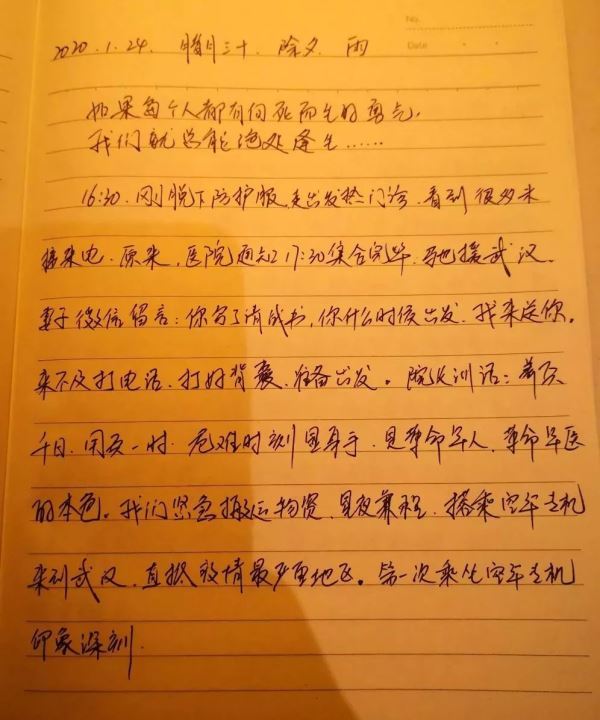 No.
Date
2020.1.24. 腊月三十. 除夕. 雨
如果每个人都有向死而生的勇气.
我们就总能绝处逢生……
16:30. 刚脱下防护服,走出发热门诊. 看到很多未
接来电. 原来, 医院通知17:30集合完毕. 驰援武汉.
妻子微信留言:你写了请战书,你什么时候出发. 我来送你。
来不及打电话. 打好背囊. 准备出发。院长训话:养兵
千日. 用兵一时. 危难时刻显身手. 见革命军人. 革命军医
的本色。我们紧急搬运物资. 星夜兼程. 搭乘空军专机
来到武汉. 直抵疫情最严重地区。第一次乘坐空军专机
印象深刻.